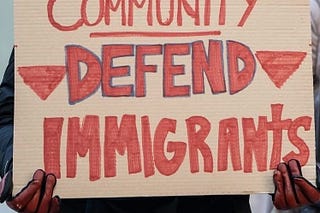 COMMUNITY
DEFEND
IMMIGRANTS